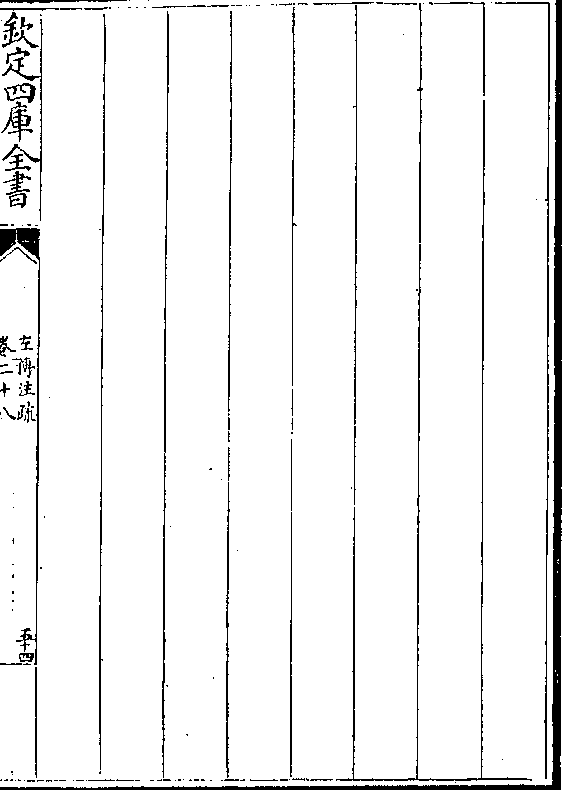 欽定四庫全書
左傳注疏
卷二十八
五十四